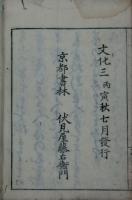 文化三丙寅秋七月發行
京都書林　伏見屋藤右衛門